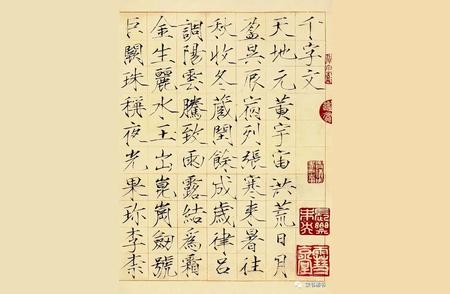 千字文
天地元黃宇宙洪荒日月
盈昃辰宿列張寒來暑往
秋收冬蔵閏餘成歲律呂
調陽雲騰致雨露結爲霜
金生麗水玉出崑崗劒號
巨闕珠稱夜光果珎李柰